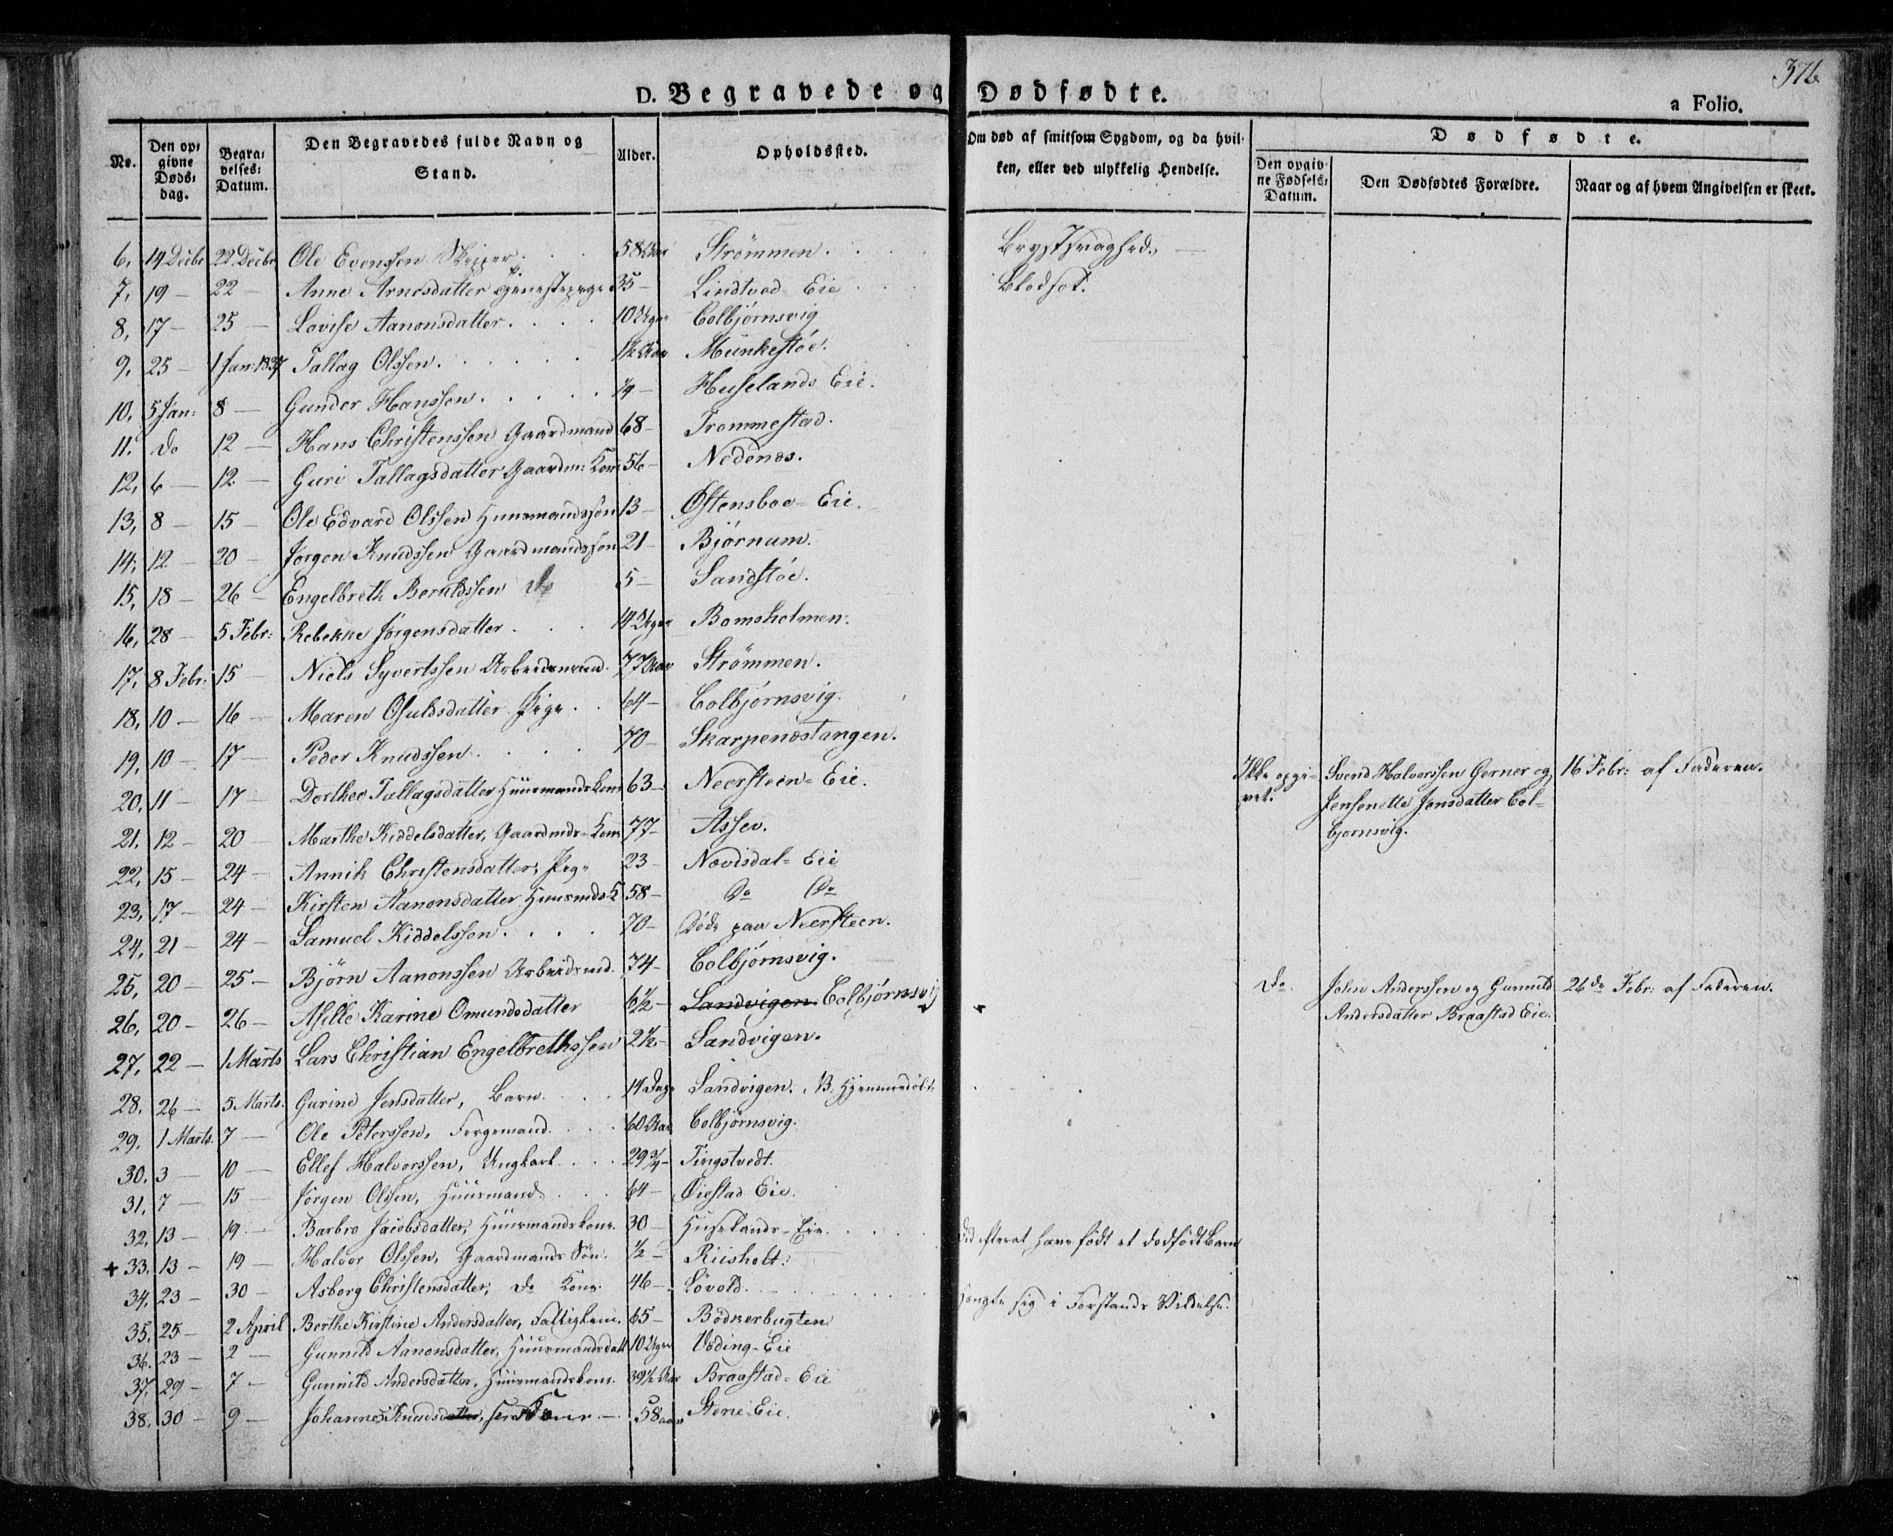 376
D. Begravede og Dødfødte.
a Folio.
No.
Den op-
givne
Døds-
dag.
Begra-
velses-
Datum.
Den Begravedes fulde Navn og
Stand.
Alder.
Opholdssted.
Om død af smitsom Sygdom, og da hvil-
ken, eller ved ulykkelig Hendelse.
Dødfødte.
Den opgiv-
ne Fødsels-
Datum.
Den Dødfødtes Forældre.
Naar og af hvem Angivelsen er skeet.
6, 14 Decbr 22 Decbr Ole Evenssen Skipper 58 Aar Strømmen. Brystsvaghed.
7, 19 — 22 — Anne Arnesdatter 35 — Lindtved-Eie Blodsot.
8, 17 — 25 — Lovise Aanonsdatter 10 Uger Colbjørnsvig
9, 25 — 1 Jan: 1837 Tallag Olssen. 1½ Aar Munkestøe.
10, 5 Jan: 8 — Gunder Hanssen ¼ — Huselands Eie.
11. do 12 — Hans Christenssen Gaardmand 68 — Trommestad.
12, 6 — 12 — Guri Tallagsdatter Gaardm: Kone 56 — Nedenes.
13, 8 — 15 — Ole Edvard Olssen Huusmandssøn 13 — Østensboe-Eie.
14, 12 — 20 — Jørgen Knudssen Gaardmandssøn 21 — Bjørnum.
15, 18 — 26 — Engelbreth Beruldssen do 5 — Sandstøe.
16, 28 — 5 Febr: Rebekke Jørgensdatter 14 Uger Bomsholmen.
17, 8 Febr: 15 — Niels Syvertssen Arbeidsmand. 77 Aar Strømmen.
18, 10 — 16 — Maren Osuldsdatter Pige 64 — Colbjørnsvig.
19, 10 — 17 — Peder Knudssen 70 — Skarpenæstangen.
20, 11 — 17 — Dorthee Tallagsdatter Huusmandskone 63 — Neersteen-Eie.
Ikke opgi- Svend Halvorssen Gerner og 16 Febr: af Faderen.
vet. Jensenette Jensdatter Col-
bjørnsvig.
21, 12 — 20 — Marthe Kiddelsdatter, Gaardmds-Kone 77 — Assev.
22, 15 — 24 — Annik Christensdatter, Pige 23 — Nævisdal-Eie
23, 17 — 24 — Kirsten Aanonsdatter Huusmds-K 58 — Do Do
24, 21 — 24 — Samuel Kiddelssen 70 — Døde paa Neersteen.
25, 20 — 25 — Bjørn Aanonssen Arbeidsmd. 74 — Colbjørnsvig.
26, 20 — 26 — Asille Karine Omundsdatter 6½ — Sandvigen Colbjørnsvig
Do John Anderssen og Gunnild 26de Febr: af Faderen.
Andersdatter Braastad Eie.
27, 22 — 1 Marts Lars Christian Engelbrethssen 2½ — Sandvigen.
28. 26 — 5 Marts. Gurine Jensdatter, Barn 14 Dage Sandvigen. NB. Hjemmedøbt
29. 1 Marts. 7 — Ole Peterssen, Fergemand 60 Aar Colbjørnsvig.
30. 3 — 10 — Ellef Halvorssen, Ungkarl 29¾ — Tingstvedt.
31, 7 — 15 — Jørgen Olssen, Huusmand 64 — Øiestad Eie.
32, 13 — 19 — Barbro Jacobsdatter, Huusmandskone. 30 — Huselands-Eie efterat have født et dødfødt Barn
+ 33, 13 — 19 — Halvor Olssen, Gaardmands Søn. ½ — Riisholt.
34. 23 — 30 — Asborg Christensdatter, do Kone 46 — Løvold. hængte sig i Forstands Vildelse.
35. 25 — 2 April Berthe Kirstine Andersdatter, Fattiglem, 65 — Bødkerbugten
36. 23 — 2 — Gunnild Aanonsdatter, Huusmandsdatt 10 Uger Vøding-Eie
37, 29 — 7 — Gunnild Andersdatter, Huusmandskone. 39½ Aar Braastad-Eie
38. 30 — 9 — Johannes Knudsdatter, 58 aar Stene-Eie.